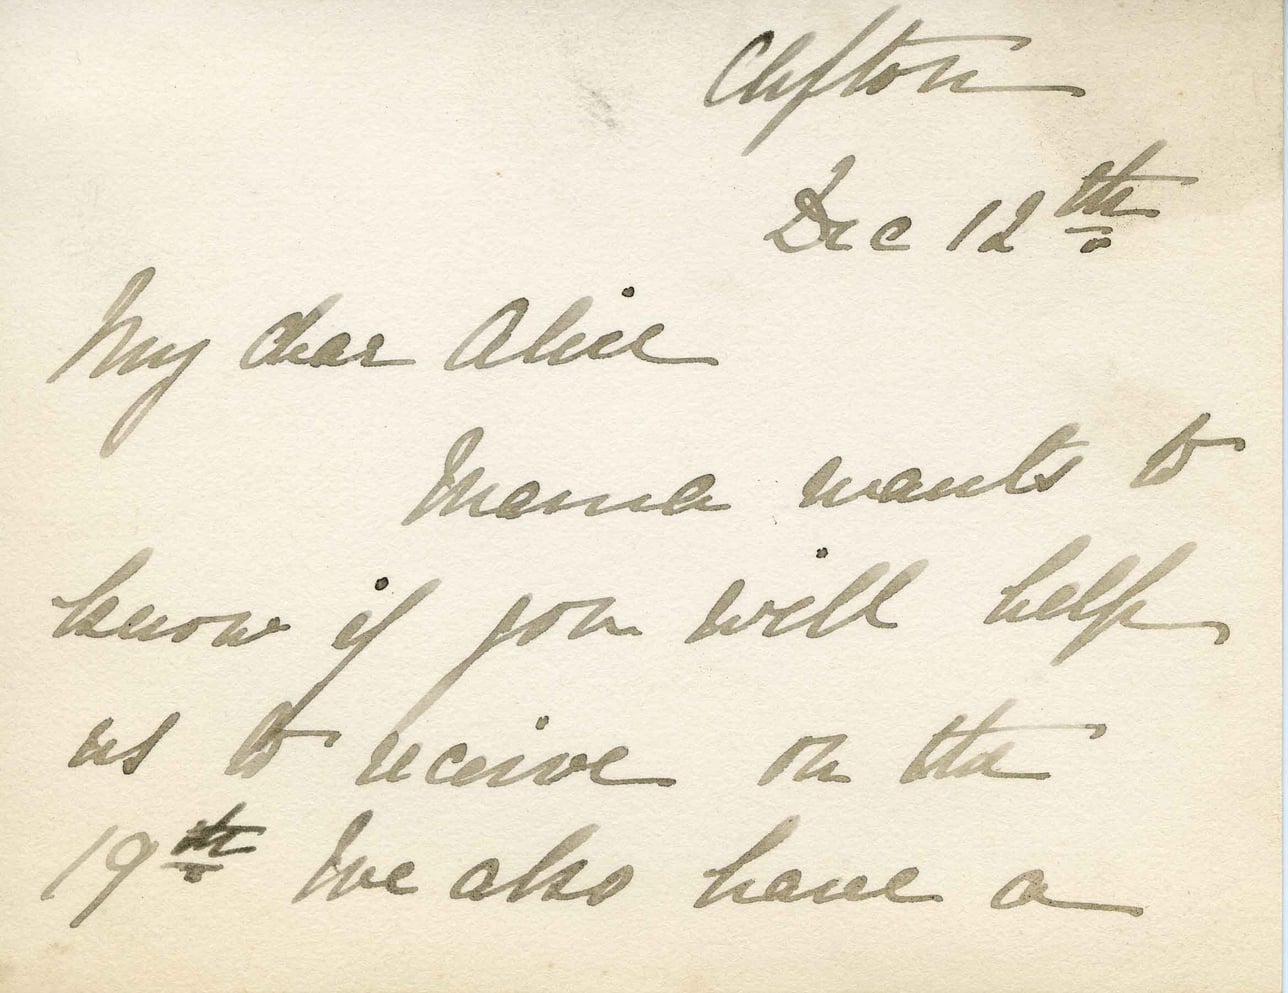 Clifton
Dec 12th
My dear Alice
Mama wants to
know if you will help
us to receive on the
19th We also have a